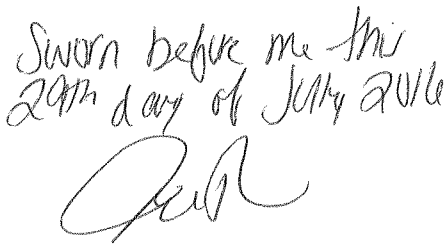 Sworn before me this
29th day of July 2016